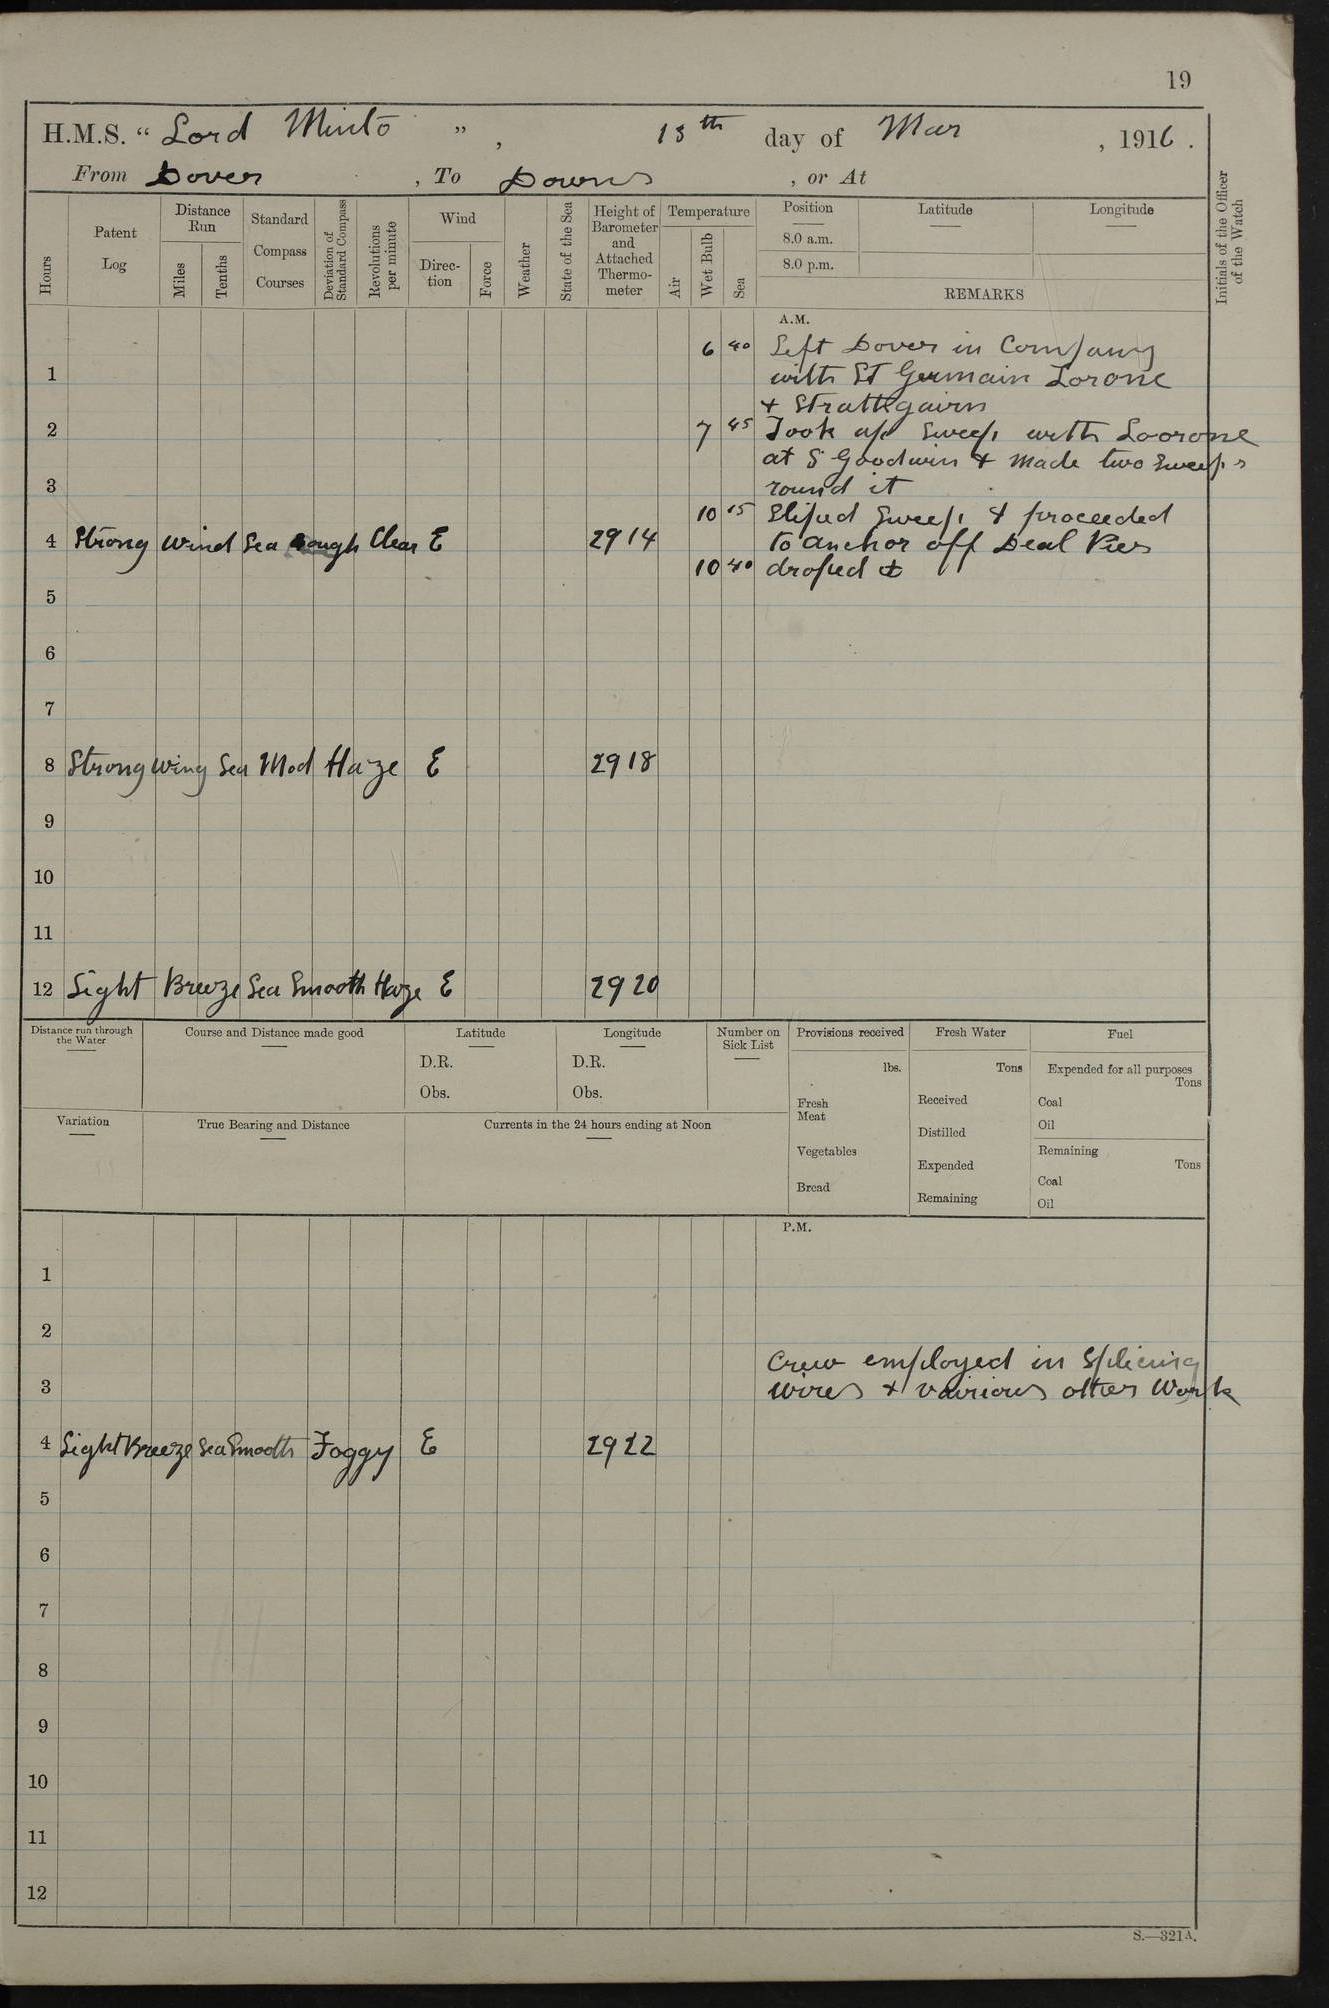 19
H.M.S. “ Lord Minto ” , 13th day of Mar , 1916 .
From Dover , To Downs , or At
Hours
Patent Log
Distance Run
Miles
Tenths
Standard Compass Courses
Deviation of Standard Compass
Revolutions per minute
Wind
Direction
Force
Weather
State of the Sea
Height of Barometer and Attached Thermometer
Temperature
Air
Wet Bulb
Sea
Position
8.0 a.m.
8.0 p.m.
Latitude
Longitude
REMARKS
Initials of the Officer of the Watch
A.M.
6 40 Left Dover in Company
1 with St Germain Lorone
& Strathgairn
2 7 45 Took up Sweep with Loorone
at S Goodwin & made two sweeps
3 round it
10 15 Sliped Sweep & proceeded
4 Strong Wind Sea Rough Clear E 2914 to anchor off Deal Pier
10 40 droped ⚓
5
6
7
8 Strong Wing Sea Mod Haze E 2918
9
10
11
12 Light Breeze Sea Smooth Haze E 2920
Distance run through the Water
Course and Distance made good
Latitude
D.R.
Obs.
Longitude
D.R.
Obs.
Number on Sick List
Provisions received
lbs.
Fresh Meat
Vegetables
Bread
Fresh Water
Tons
Received
Distilled
Expended
Remaining
Fuel
Expended for all purposes
Tons
Coal
Oil
Remaining
Tons
Coal
Oil
Variation
True Bearing and Distance
Currents in the 24 hours ending at Noon
P.M.
1
2
Crew employed in Splicing
3 wires & vairious other Work
4 Light Breeze Sea Smooth Foggy E 2922
5
6
7
8
9
10
11
12
S.—321A.